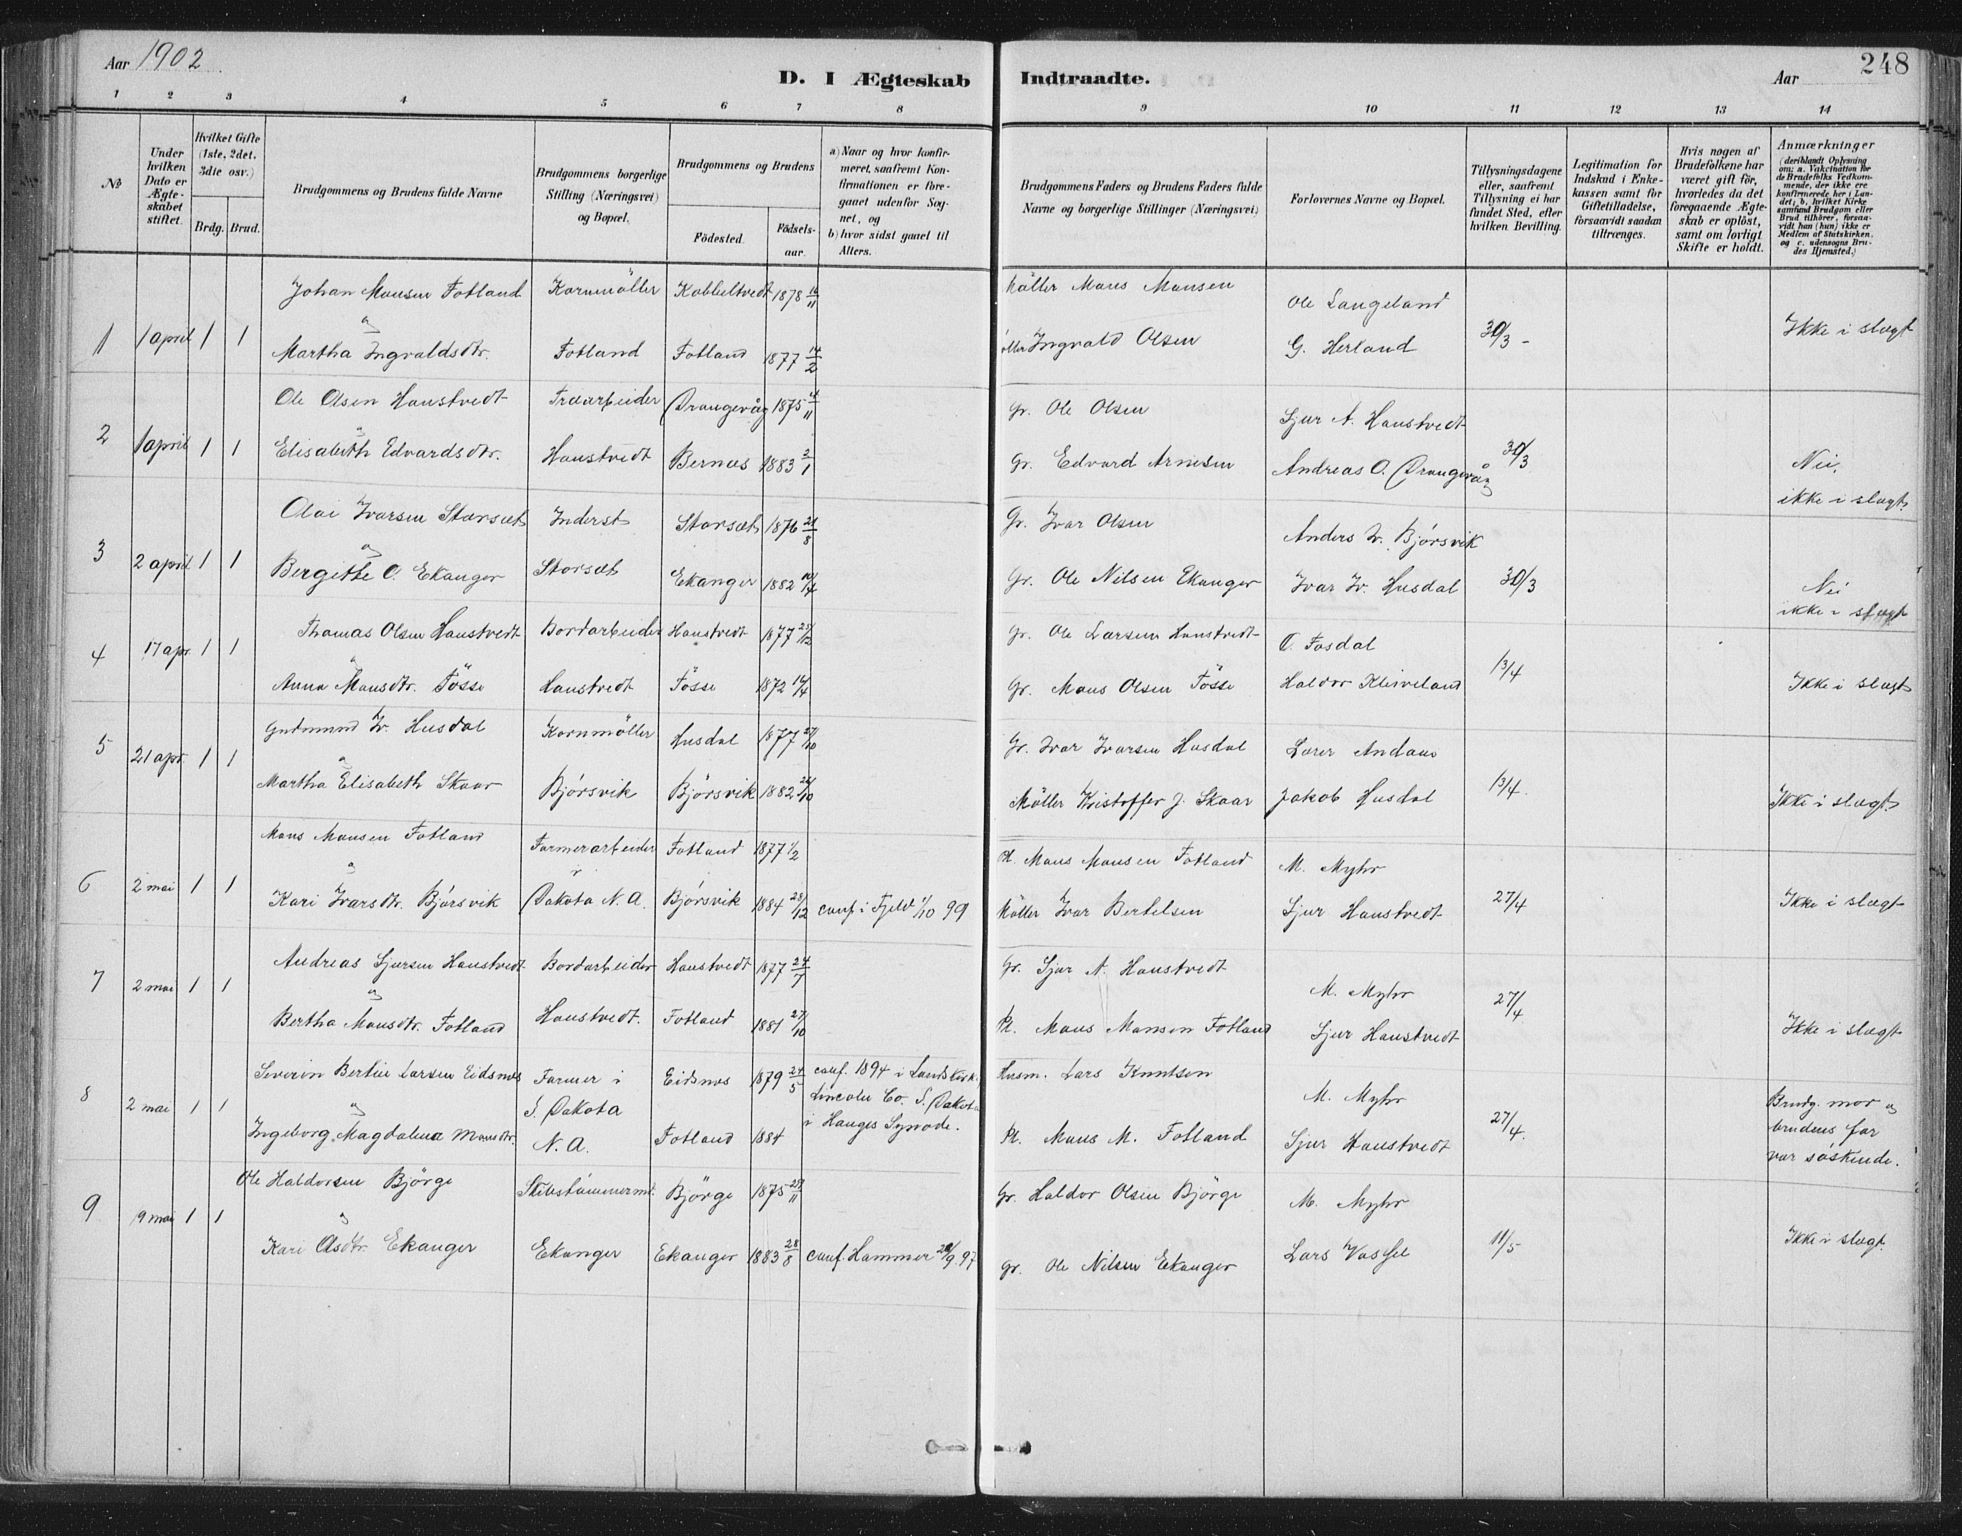 Aar 1902
D. I Ægteskab Indtraadte.
Aar
248
1 2 3 4 5 6 7 8 9 10 11 12 13 14
No
Under hvilken Dato er Ægteskabet stiftet.
Hvilket Gifte (1ste, 2det, 3die osv.)
Brdg. Brud.
Brudgommens og Brudens fulde Navne
Brudgommens borgerlige Stilling (Næringsvei) og Bopæl.
Brudgommens og Brudens
Födested.
Födselsaar.
a) Naar og hvor konfirmeret, saafremt Konfirmationen er foregaaet udenfor Sognet, og
b) hvor sidst gaaet til Alters.
Brudgommens Faders og Brudens Faders fulde Navne og borgerlige Stillinger (Næringsvei)
Forlovernes Navne og Bopæl.
Tillysningsdagene eller, saafremt Tillysning ei har fundet Sted, efter hvilken Bevilling.
Legitimation for Indskud i Enkekassen samt for Giftetilladelse, forsaavidt saadan tiltrænges.
Hvis nogen af Brudefolkene har været gift för, hvorledes da det foregaaende Ægteskab er oplöst, samt om lovligt Skifte er holdt.
Anmærkninger
(deriblandt Oplysning om: a. Vakcination for de Brudefolks Vedkommende, der ikke ere konfirmerede her i Landet; b. hvilket Kirkesamfund Brudgom eller Brud tilhörer, forsaavidt han (hun) ikke er Medlem af Statskirken, og c. udensogns Brudes Hjemsted.)
1 1 april 1 1 Johan Mansen Fotland Kornmöller Kobbeltvedt 1878 16/11 Möller Mons Monsen Ole Langeland
og
Martha Ingvaldsdtr. Fotland Fotland 1877 14/2 Ingvald Olsen G. Herland 30/3 - Ikke i slægt
2 1 april 1 1 Ole Olsen Hanstvedt Træarbeider Drangevåg 1875 4/11 Gr. Ole Olsen Sjur A. Hanstvedt
og
Elisabeth Edvardsdtr. Hanstvedt Bernes 1883 2/1 Gr. Edvard Arnesen Andreas O. Drangevåg 30/3 Nei, ikke i slægt
3 2 april 1 1 Olai Ivarsen Storset Inderst Storset 1876 21/8 Gr. Ivar Olsen Anders Iv. Bjørsvik
og
Bergitte O. Ekanger Storset Ekanger 1882 Gr. Ole Nilsen Ekanger Ivar Iv. Husdal 30/3 Nei ikke i slægt
4 17 apr. 1 1 Thomas Olsen Hanstvedt Bordarbeider Hanstvedt 1877 25/12 Gr. Ole Larsen Hanstvedt O. Fosdal
og
Anna Mansdtr. Fösse Hanstvedt Fösse 1872 14/4 Gr. Mons Olsen Fösse Haldor Kleiveland 13/4 Ikke i slægt
5 21 apr. 1 1 Gudmund Iv. Husdal Kornmöller Husdal 1877 27/10 Gr. Ivar Ivarsen Husdal Lærer Andaas
og
Martha Elisabeth Skaar Bjørsvik Bjørsvik 1882 26/10 Möller Kristoffer J. Skaar Jakob Husdal 13/4. Ikke i slægt
6 2 mai 1 1 Mons Monsen Fotland Farmerarbeider Fotland 1877 1/2 Pl. Mons Monsen Fotland M. Myhr
og i
Kari Ivarsdtr. Bjørsvik Dakota N.A. Bjørsvik 1884 28/12 conf. i Fjeld 1/10 99 Möller Ivar Bertelsen Sjur Hanstvedt 27/4 Ikke i slægt
7 2 mai 1 1 Andreas Sjursen Hanstvedt Bordarbeider Hanstvedt 1877 24/7 Gr. Sjur A. Hanstvedt M. Myhr
og
Bertha Monsdtr. Fotland Hanstvedt. Fotland 1881 27/10 Pl. Mons Monsen Fotland Sjur Hanstvedt 27/4 Ikke i slægt
8 2 mai 1 1 Severin Bertin Larsen Eidsnes Farmer i Eidsnes 1879 24/5 conf. 1894 i Landskirk. Husm. Lars Knutsen M. Myhr
og S. Dakota Lincoln Co. S. Dakota
i Hauges Synode.
Ingeborg Magdalena Monsdtr. N.A. Fotland 1884 Pl. Mons M. Fotland Sjur Hanstvedt 27/4. Brudg. mor og brudens far var søskende.
9 9 mai 1 1 Ole Haldorsen Björge Skibstömmermd. Björge 1875 25/11 Gr. Haldor Olsen Björge M. Myhr
og
Kari Olsdtr. Ekanger Ekanger Ekanger 1883 28/8 conf. Hammer 26/9.97 Gr. Ole Nilsen Ekanger Lars Vassel 11/5 Ikke i slægt.